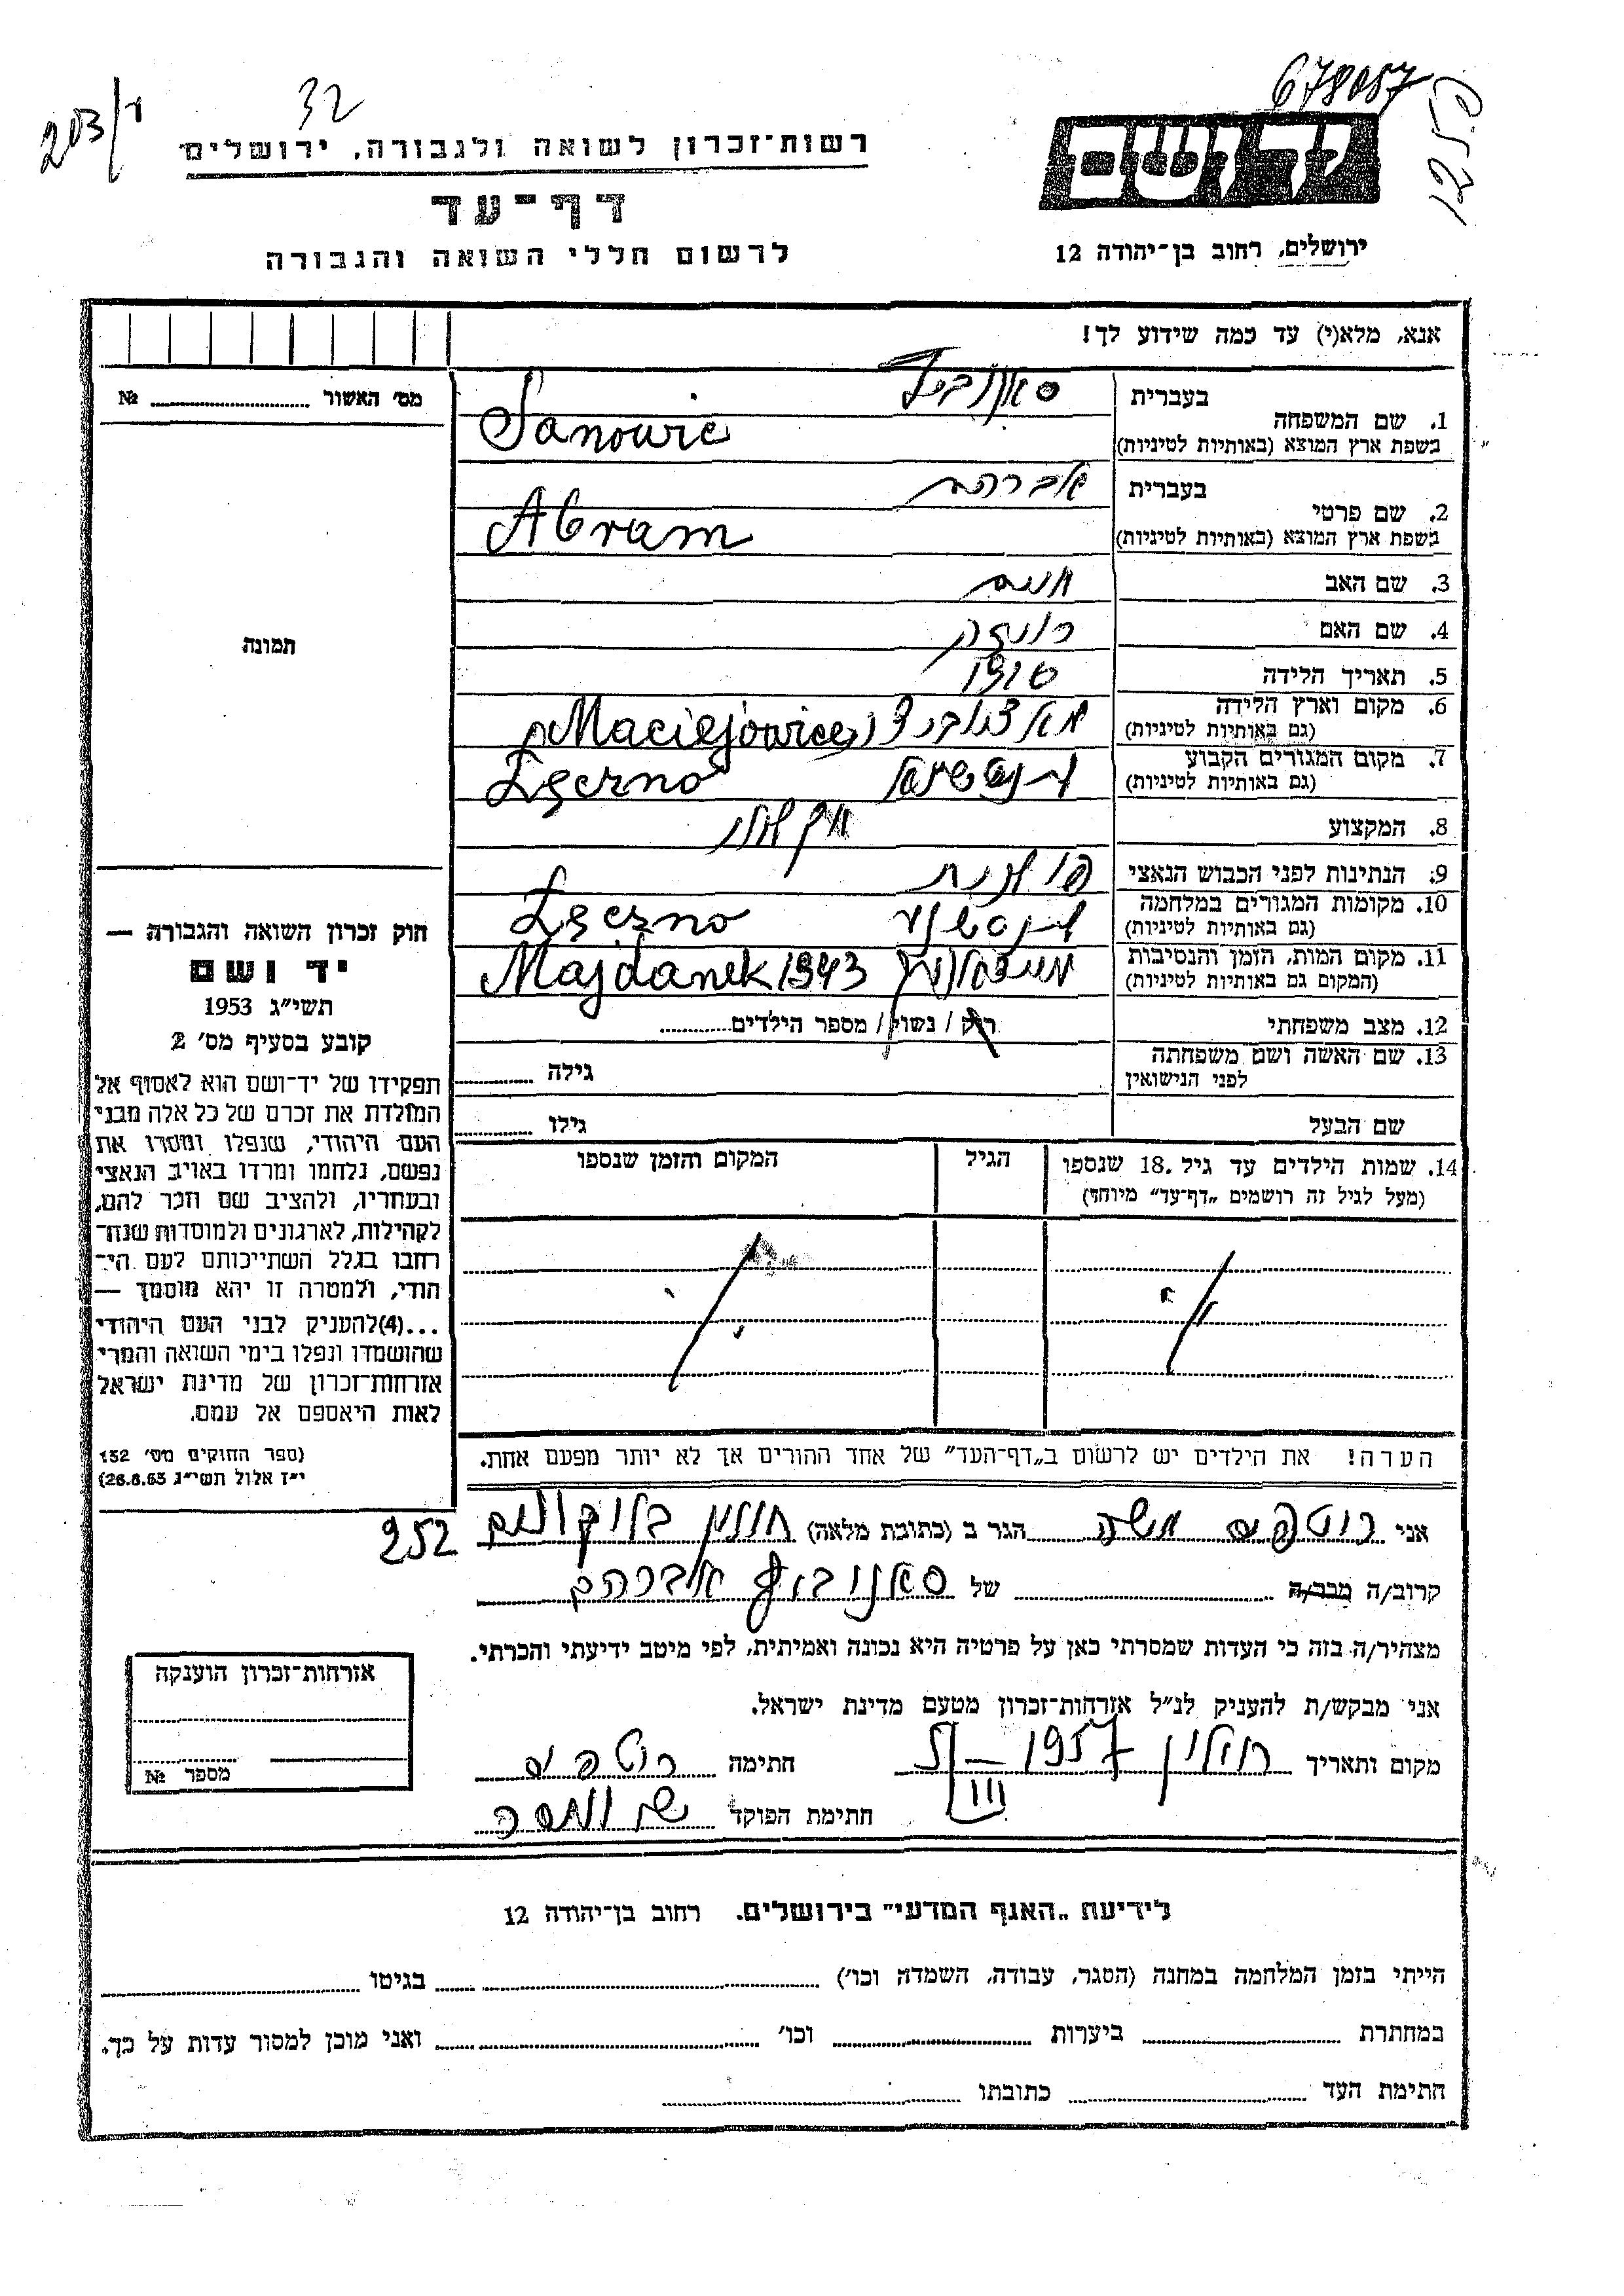 678057
32
203/ו
רשות־זכרון לשואה ולגבורה, ירושלים
דף־עד
לרשום חללי השואה והגבורה
ידושם
ירושלים, רחוב בן־יהודה 12
אנא, מלא(י) עד כמה שידוע לך!
מס׳ האשור № 
1. שם המשפחה
בעברית
בשפת ארץ המוצא (באותיות לטיניות)
Sanowic
2. שם פרטי
בעברית אברהם
בשפת ארץ המוצא (באותיות לטיניות)
Abram
3. שם האב חיים
4. שם האם רויזה
5. תאריך הלידה 1910
6. מקום וארץ הלידה
(גם באותיות לטיניות)
Maciejowice
7. מקום המגורים הקבוע
(גם באותיות לטיניות)
Łęczno
8. המקצוע
9. הנתינות לפני הכבוש הנאצי פולנית
10. מקומות המגורים במלחמה
(גם באותיות לטיניות)
Łęczno
11. מקום המות, הזמן והנסיבות
(המקום גם באותיות לטיניות)
מיידאנק Majdanek 1943
12. מצב משפחתי רוק / נשוי / מספר הילדים
13. שם האשה ושם משפחתה
לפני הנישואין
גילה
שם הבעל גילו
14. שמות הילדים עד גיל 18. שנספו
(מעל לגיל זה רושמים „דף־עד״ מיוחד)
הגיל
המקום והזמן שנספו
תמונה
חוק זכרון השואה והגבורה —
יד ושם
תשי״ג 1953
קובע בסעיף מס׳ 2
תפקידו של יד־ושם הוא לאסוף אל
המולדת את זכרם של כל אלה מבני
העם היהודי, שנפלו ומסרו את
נפשם, נלחמו ומרדו באויב הנאצי
ובעוזריו, ולהציב שם וזכר להם,
לקהילות, לארגונים ולמוסדות שנח־
רחבו בגלל השתייכותם לעם הי־
הודי, ולמטרה זו יהא מוסמך —
...(4)להעניק לבני העם היהודי
שהושמדו ונפלו בימי השואה והמרי
אזרחות־זכרון של מדינת ישראל
לאות היאספם אל עמם.
(ספר החוקים מס׳ 132
י״ז אלול תשי״ג 28.8.53)
הערה! את הילדים יש לרשום ב„דף־העד״ של אחד ההורים אך לא יותר מפעם אחת.
אני משה הגר ב (כתובת מלאה) חולון 252
קרוב/ה מכר/ה של סאנוביץ אברהם
מצהיר/ה בזה כי העדות שמסרתי כאן על פרטיה היא נכונה ואמיתית, לפי מיטב ידיעתי והכרתי.
אני מבקש/ת להעניק לנ״ל אזרחות־זכרון מטעם מדינת ישראל.
מקום ותאריך חולון 1957 III חתימה
חתימת הפוקד
אזרחות־זכרון הוענקה
מספר №
לידיעת „האגף המדעי״ בירושלים. רחוב בן־יהודה 12
הייתי בזמן המלחמה במחנה (הסגר, עבודה, השמדה וכו׳) בגיטו
במחתרת ביערות וכו׳ ואני מוכן למסור עדות על כך.
חתימת העד כתובתו